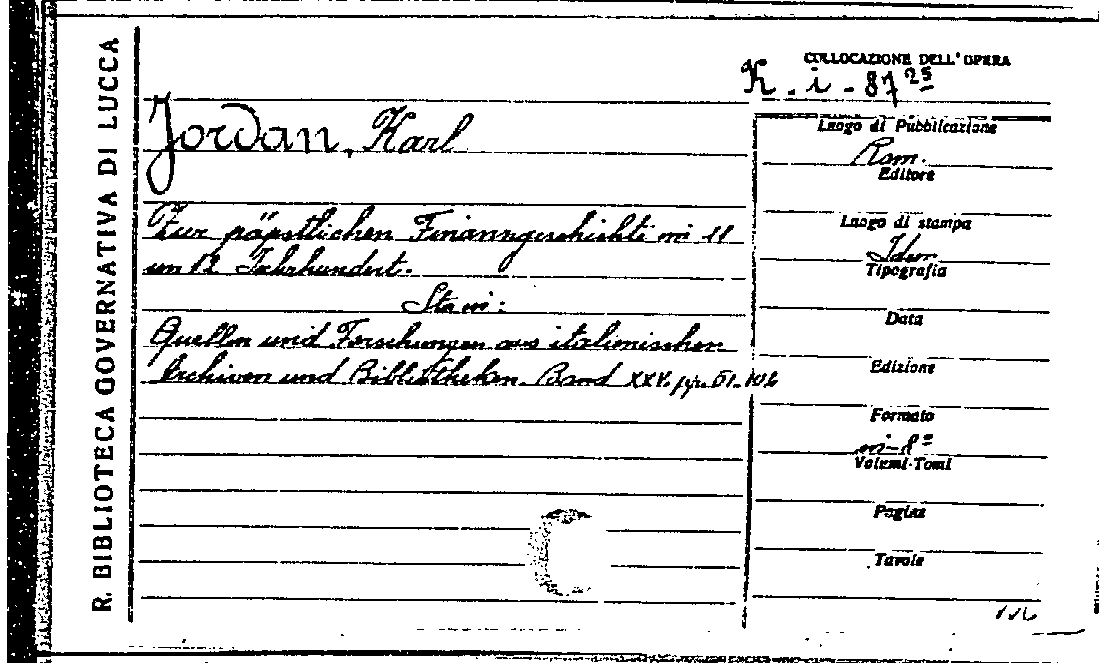 R. BIBLIOTECA GOVERNATIVA DI LUCCA
COLLOCAZIONE DELL'OPERA
K. i - 87 25
Jordan, Karl
Zur päpstlichen Finanngeschichte im 11
un 12. Jahrhundert.
Sta in:
Quellen und Forschungen aus italienischen
Archiven und Bibliotheken. Band XXV. pp. 61-
Luogo di Pubblicazione
Rom.
Editore
Luogo di stampa
Idem
Tipografia
Data
Edizione
Formato
in-8°
Volumi-Tomi
Pagine
Tavole